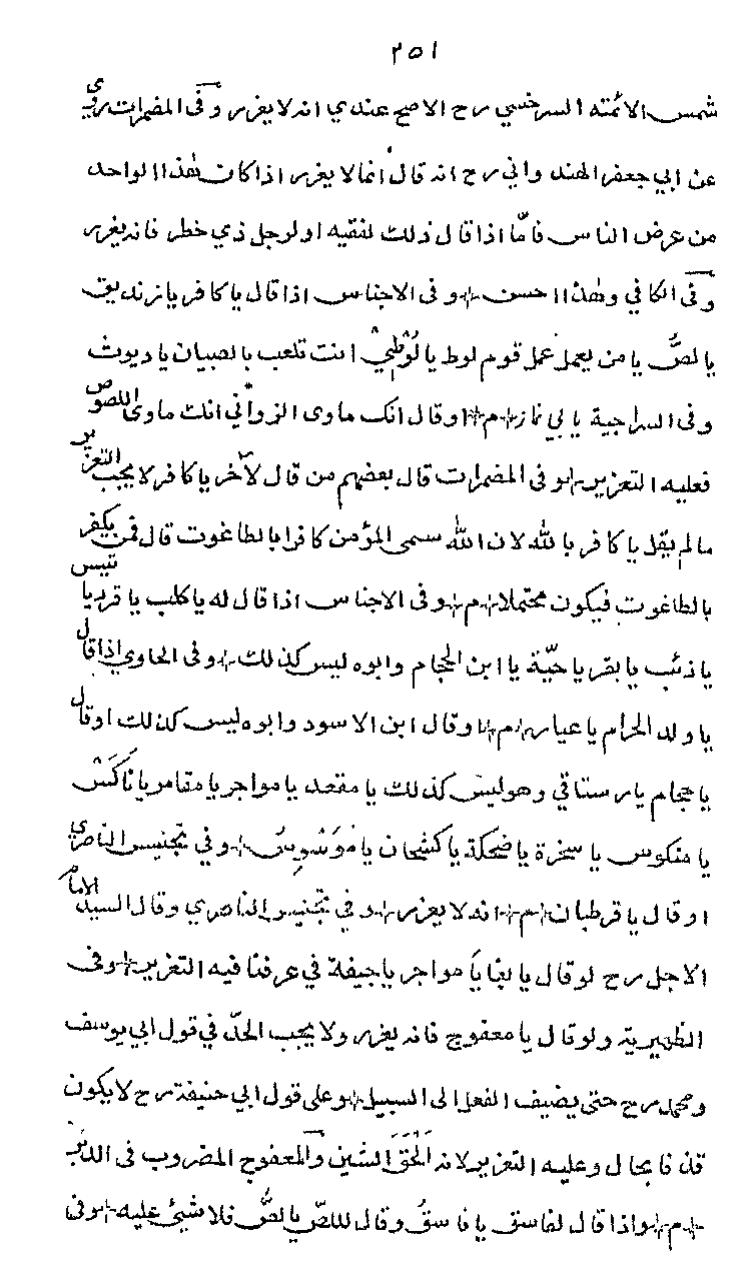 ٢٥١
شمس الائمته السرخسي رح الاصح عندي انه لا يعزر وفى المضمرات روي
عن ابي جعفر الهند واني رح انه قال انما لا يعزر اذا كان هذا الواحد
من عرض الناس فامّا اذا قال ذلك لفقيه او لرجل ذي خطر فانه يعزر
وفى الكافي وهذا احسن وفى الاجناس اذا قال يا كافر يا زنديق
يا لصّ يا من يعمل عمل قوم لوط يا لُوْطِيْ انت تلعب بالصبيان يا ديوث
وفى السراجية يا بي نماز م او قال انك ماوى الزواني انك ماوى اللصوص
فعليه التعزير وفى المضمرات قال بعضهم من قال لآخر يا كافر لا يجب التعزير
ما لم يقل يا كافر بالله لان الله سمى المؤمن كافرا بالطاغوت قال فمن يكفر
بالطاغوت فيكون محتملا م وفى الاجناس اذا قال له يا كلب يا قرد يا تيس
يا ذئب يا بقر يا حيّة يا ابن الحجام وابوه ليس كذلك وفى الحاوي اذا قال
يا ولد الحرام يا عيار م وقال ابن الاسود وابوه ليس كذلك او قال
يا حجام يا رستاقي وهو ليس كذلك يا مقعد يا مواجر يا مقامر يا ناكَش
يا منكوس يا سخرة يا ضحكة يا كشحان يا وفي تجنيس الناصري
او قال يا قرطبان م انه لا يعزر وفي تجنيس الناصري وقال السيد الامام
الاجل رح لو قال يا بغا يا مواجر يا جيفة في عرفنا فيه التعزير وفى
الظهيرية ولو قال يا معفوج فانه يعزر ولا يجب الحدّ في قول ابي يوسف
ومحمد رح حتى يضيف الفعل الى السبيل وعلى قول ابي حنيفة رح لا يكون
قذفا بحال وعليه التعزير لانه اَلْحَقَ الشين والمعفوج المضروب فى الدبر
م واذا قال لفاسق يا فاسقُ وقال للصّ يا لصُّ فلا شيئ عليه وفى